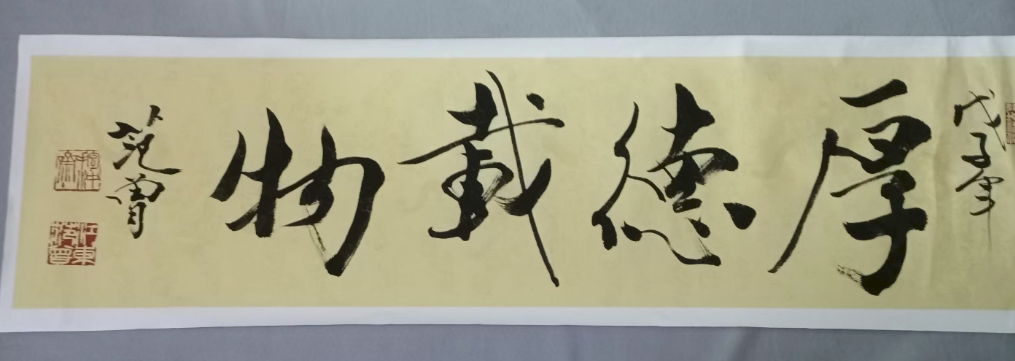 戊子年
厚德載物
范曾
江東范曾